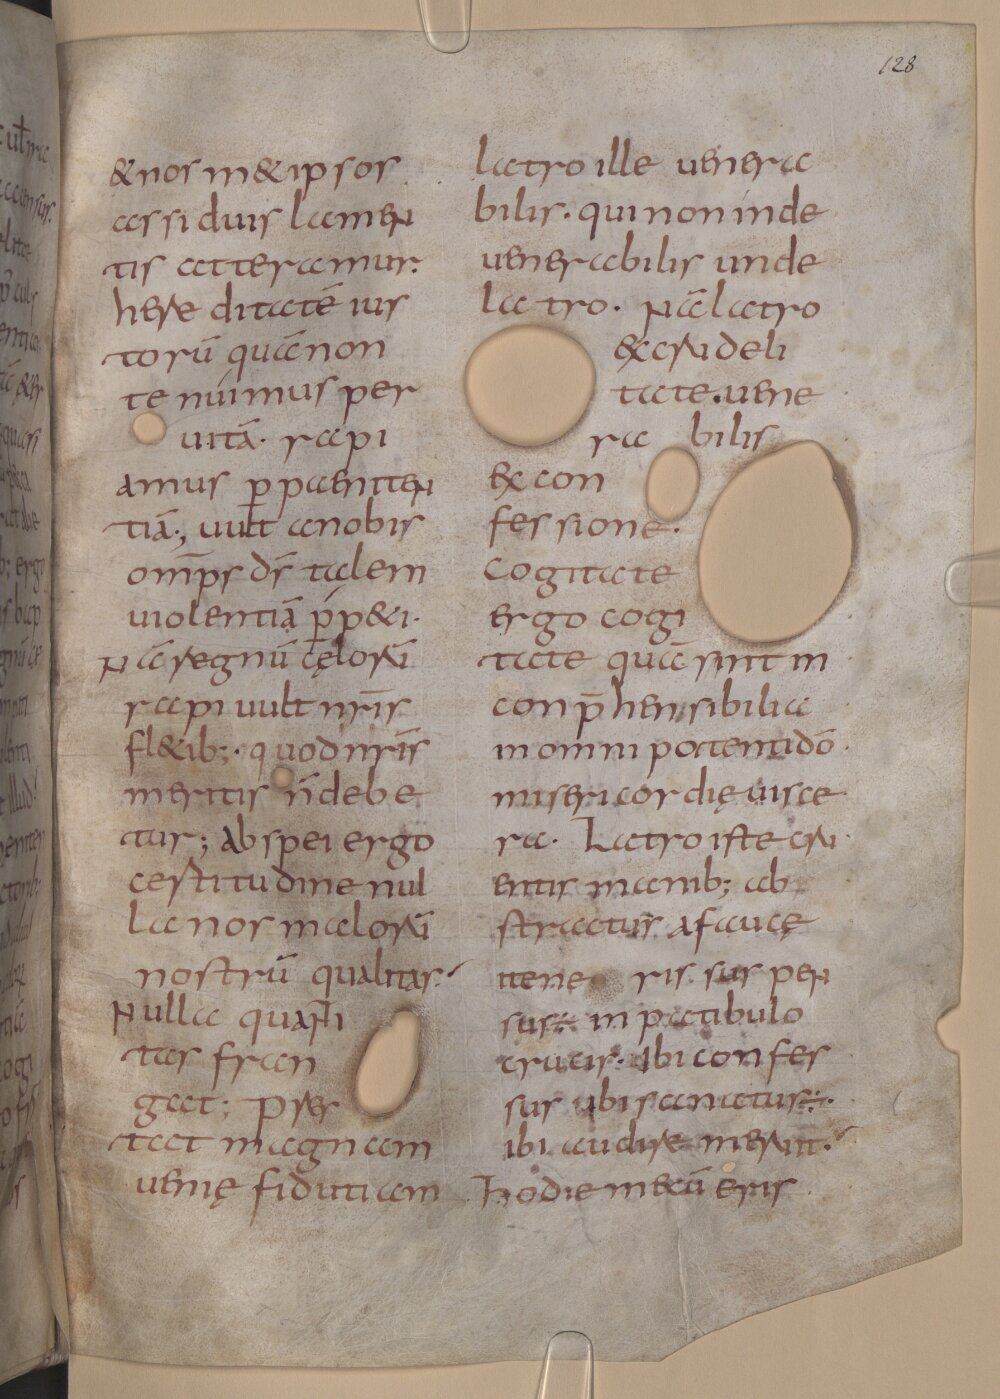 128
&nos in&ipsos
assiduis lamen
tis atteramur.
hereditatē ius
torū quā non
tenuimus per
uitā. rapi
amus p̱ pæniten
tiā; uult a nobis
om̄ps ds̄ talem
uiolentiā p̱p&i.
Nā regnū cęlorū
rapi uult nr̄is
fl&ib;. quod nr̄is
meritis n̄ debe
tur; Ab spei ergo
certitudine nul
la nos malorū
nostrū qualitas.
Nulla quan
tas fran
gat; Præs
tat magnam
uenię fidutiam
latro ille uenera
bilis. qui non inde
uenerabilis unde
latro. Nā latro
&crudeli
tate. uene
ra bilis
ex con
fessione.
Cogitate
ergo cogi
tate quā sint in
conp̄hensibilia
in omnipotenti dō
misericordię uisce
ra. Latro iste cru
entis manib; ab
stractus a faucę
itene ris. suspen
sus in patibulo
crucis. Ibi confes
sus ubi sanatus.
ibi audire meruit.
Hodie mecū eris